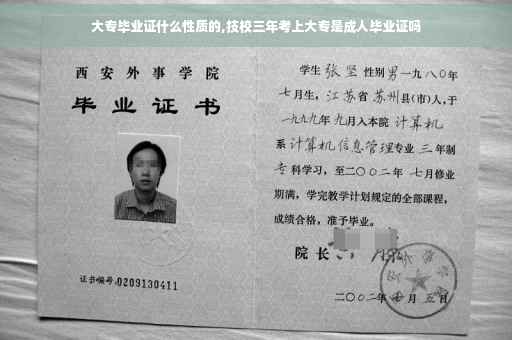 大专毕业证什么性质的,技校三年考上大专是成人毕业证吗
西安外事学院
毕业证书
证书编号:0209130411
学生 张坚 性别 男 一九八〇年
七月生, 江苏省 苏州县(市)人,于
一九九九年 九月入本院 计算机
系 计算机信息管理专业 三 年制
专科学习,至二〇〇二年 七月修业
期满,学完教学计划规定的全部课程,
成绩合格,准予毕业。
院长
二〇〇二年 七月 五日